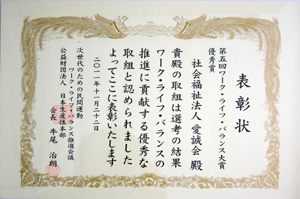 表彰状
第五回ワーク・ライフ・バランス大賞
優秀賞
社会福祉法人 愛誠会 殿
貴殿の取組は選考の結果
ワーク・ライフ・バランスの
推進に貢献する優秀な
取組と認められました
よってここに表彰いたします
二〇一一年十一月二十二日
次世代のための民間運動
ワーク・ライフ・バランス推進会議
公益財団法人 日本生産性本部
会長 牛尾 治朗